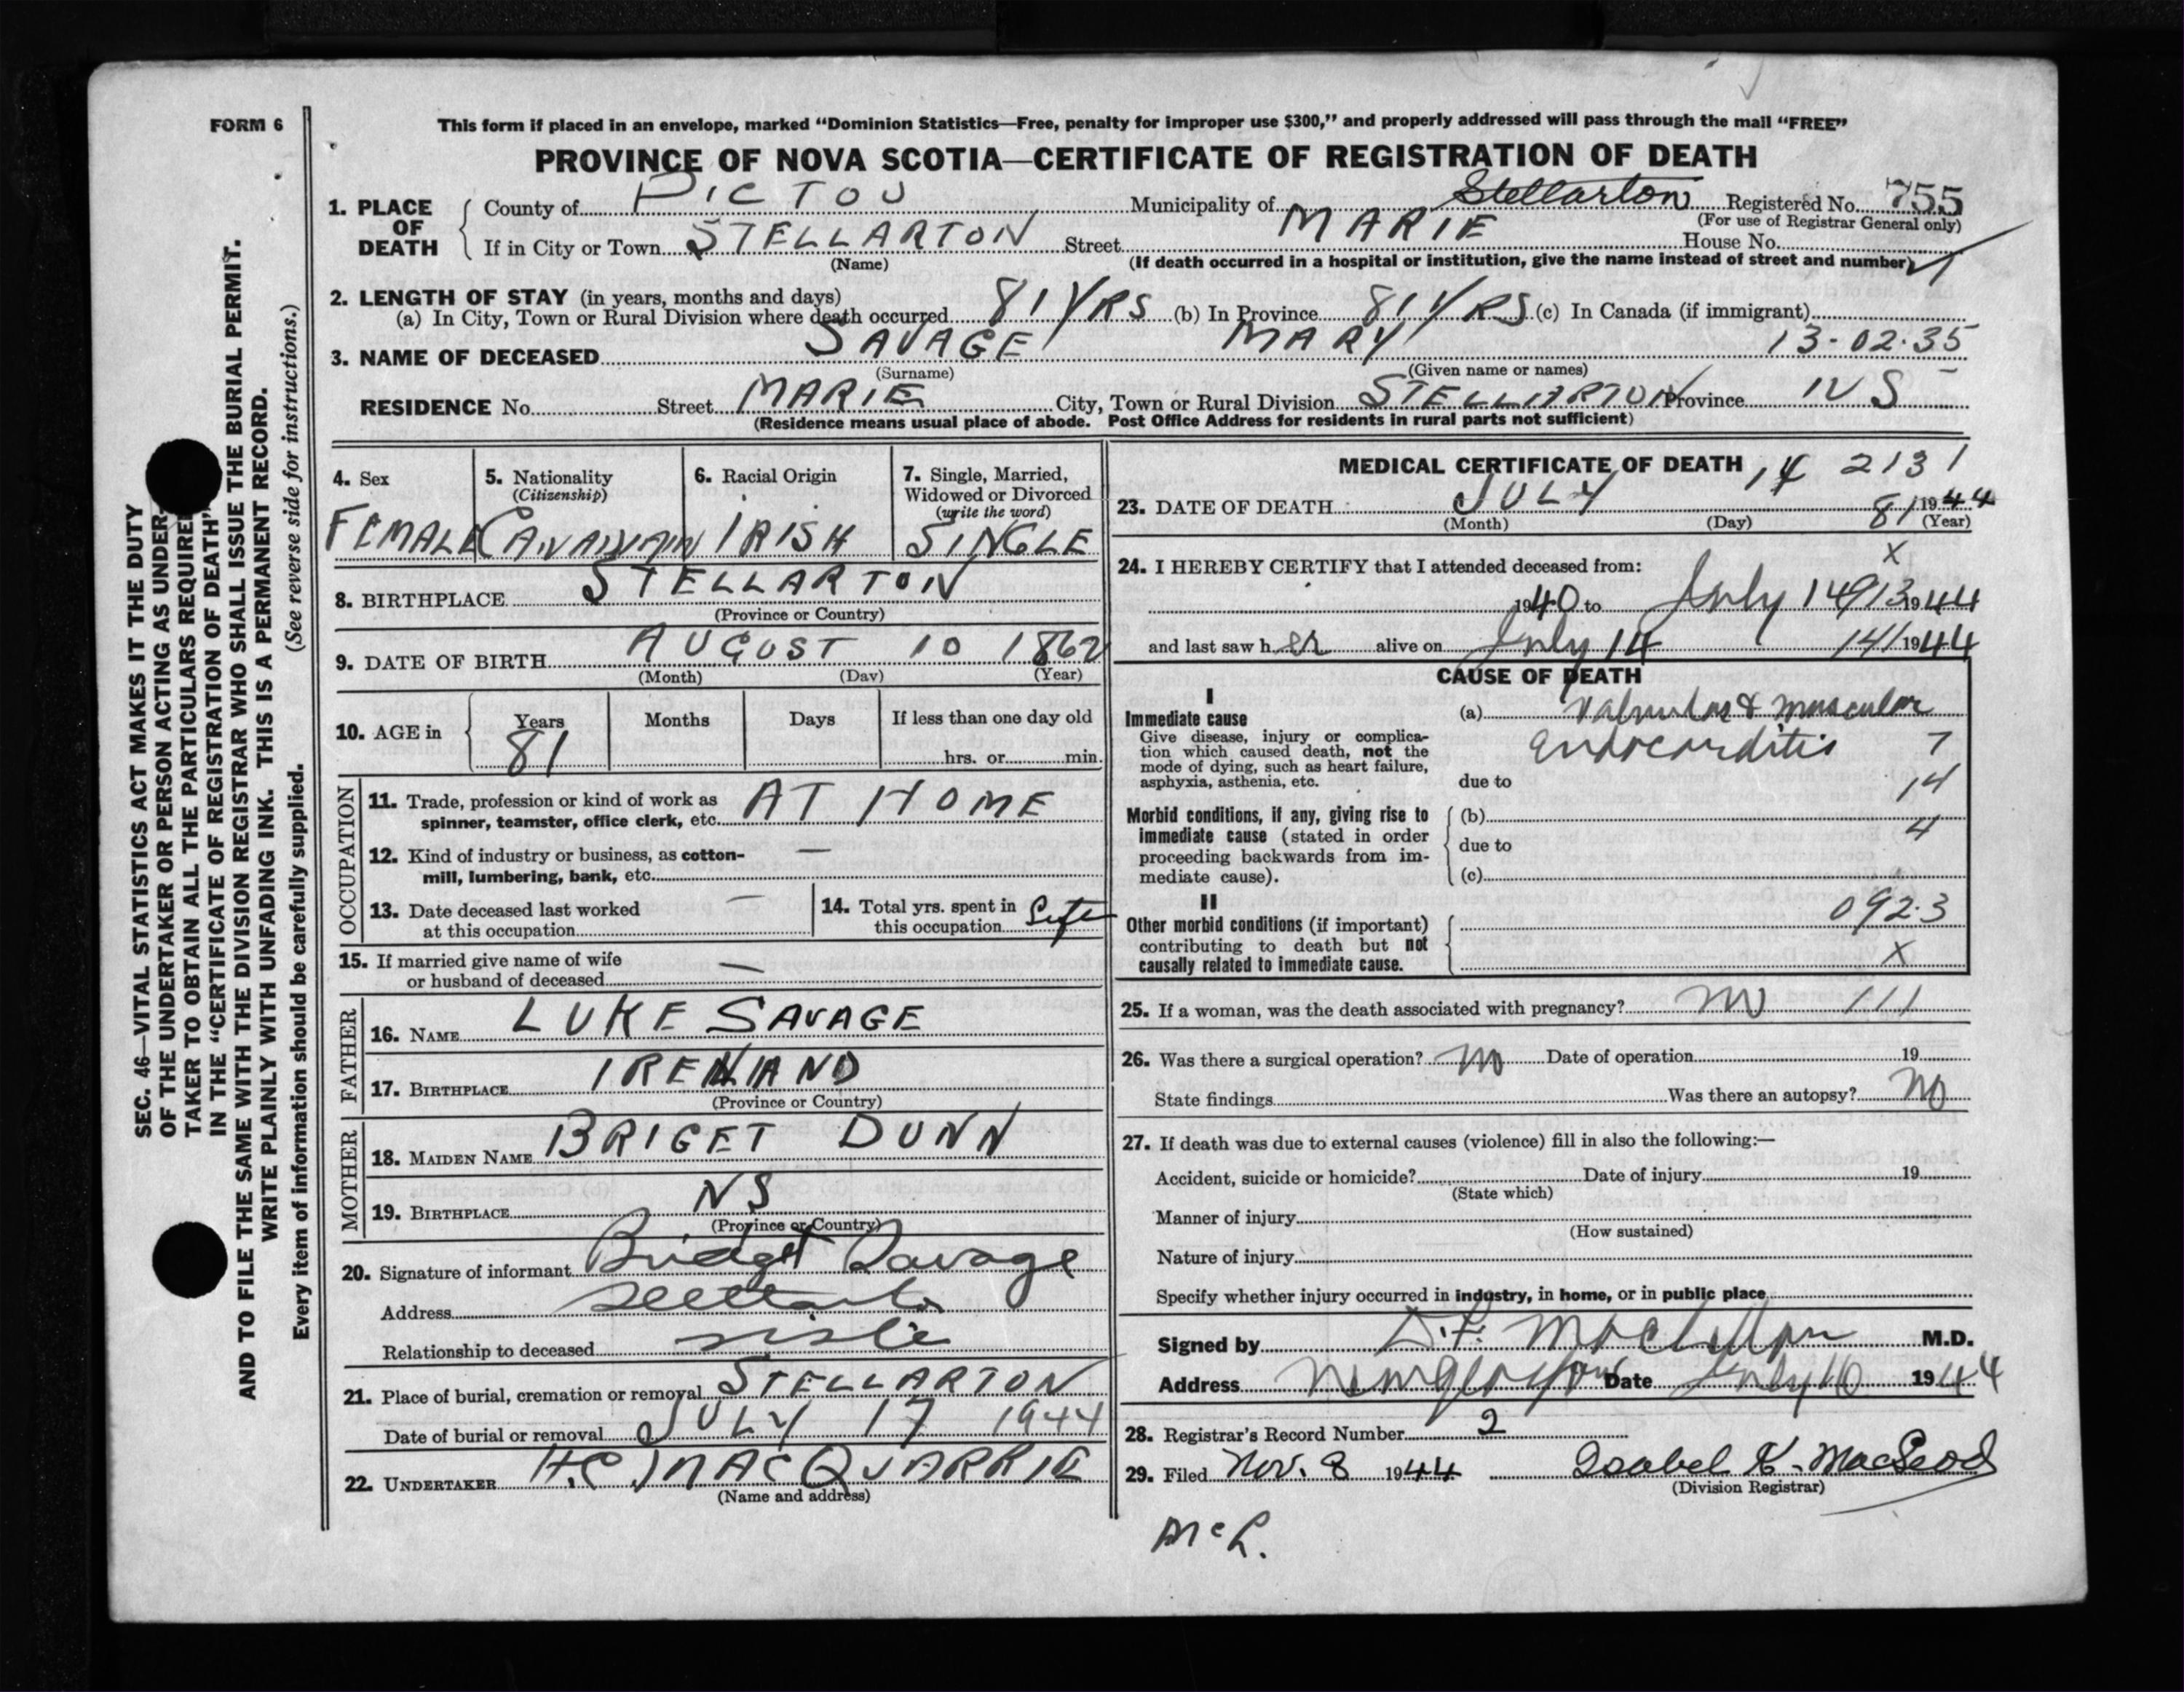 FORM 6
This form if placed in an envelope, marked “Dominion Statistics—Free, penalty for improper use $300,” and properly addressed will pass through the mail “FREE”
PROVINCE OF NOVA SCOTIA—CERTIFICATE OF REGISTRATION OF DEATH
1. PLACE OF DEATH County of PICTOU Municipality of Stellarton Registered No. 755
(For use of Registrar General only)
If in City or Town STELLARTON Street MARIE House No.
(Name) (If death occurred in a hospital or institution, give the name instead of street and number)
2. LENGTH OF STAY (in years, months and days)
(a) In City, Town or Rural Division where death occurred 81 YRS (b) In Province 81 YRS (c) In Canada (if immigrant)
3. NAME OF DECEASED SAVAGE MARY 13-02-35
(Surname) (Given name or names)
RESIDENCE No. Street MARIE City, Town or Rural Division STELLARTON Province NS
(Residence means usual place of abode. Post Office Address for residents in rural parts not sufficient)
4. Sex 5. Nationality (Citizenship) 6. Racial Origin 7. Single, Married, Widowed or Divorced (write the word)
FEMALE CANADIAN IRISH SINGLE
8. BIRTHPLACE STELLARTON
(Province or Country)
9. DATE OF BIRTH AUGUST 10 1862
(Month) (Day) (Year)
10. AGE in Years Months Days If less than one day old
81 hrs. or min.
OCCUPATION
11. Trade, profession or kind of work as spinner, teamster, office clerk, etc. AT HOME
12. Kind of industry or business, as cotton-mill, lumbering, bank, etc. —
13. Date deceased last worked at this occupation —
14. Total yrs. spent in this occupation Life
15. If married give name of wife or husband of deceased —
FATHER
16. NAME LUKE SAVAGE
17. BIRTHPLACE IRELAND
(Province or Country)
MOTHER
18. MAIDEN NAME BRIGET DUNN
19. BIRTHPLACE NS
(Province or Country)
20. Signature of informant Bridget Savage
Address Stellarton
Relationship to deceased sister
21. Place of burial, cremation or removal STELLARTON
Date of burial or removal JULY 17 1944
22. UNDERTAKER H.C. MACQUARRIE
(Name and address)
MEDICAL CERTIFICATE OF DEATH 2131
23. DATE OF DEATH JULY 14 1944
(Month) (Day) 81 (Year)
X
24. I HEREBY CERTIFY that I attended deceased from:
1940 to July 14 13 1944
and last saw her alive on July 14 141 1944
CAUSE OF DEATH
I
Immediate cause
Give disease, injury or complication which caused death, not the mode of dying, such as heart failure, asphyxia, asthenia, etc.
(a) Valvular & muscular
endocarditis 7
due to 14
Morbid conditions, if any, giving rise to immediate cause (stated in order proceeding backwards from immediate cause).
(b)
due to 4
(c)
II
Other morbid conditions (if important) contributing to death but not causally related to immediate cause.
092.3
X
25. If a woman, was the death associated with pregnancy? No 111
26. Was there a surgical operation? No Date of operation 19
State findings Was there an autopsy? No
27. If death was due to external causes (violence) fill in also the following:—
Accident, suicide or homicide? Date of injury 19
(State which)
Manner of injury
(How sustained)
Nature of injury
Specify whether injury occurred in industry, in home, or in public place
Signed by D.F. MacLellan M.D.
Address New Glasgow Date July 16 1944
28. Registrar's Record Number 2
29. Filed Nov. 8 1944 Isabel K. MacLeod
(Division Registrar)
McL.
SEC. 46—VITAL STATISTICS ACT MAKES IT THE DUTY
OF THE UNDERTAKER OR PERSON ACTING AS UNDER-
TAKER TO OBTAIN ALL THE PARTICULARS REQUIRED
IN THE “CERTIFICATE OF REGISTRATION OF DEATH”
AND TO FILE THE SAME WITH THE DIVISION REGISTRAR WHO SHALL ISSUE THE BURIAL PERMIT.
WRITE PLAINLY WITH UNFADING INK. THIS IS A PERMANENT RECORD.
Every item of information should be carefully supplied. (See reverse side for instructions.)